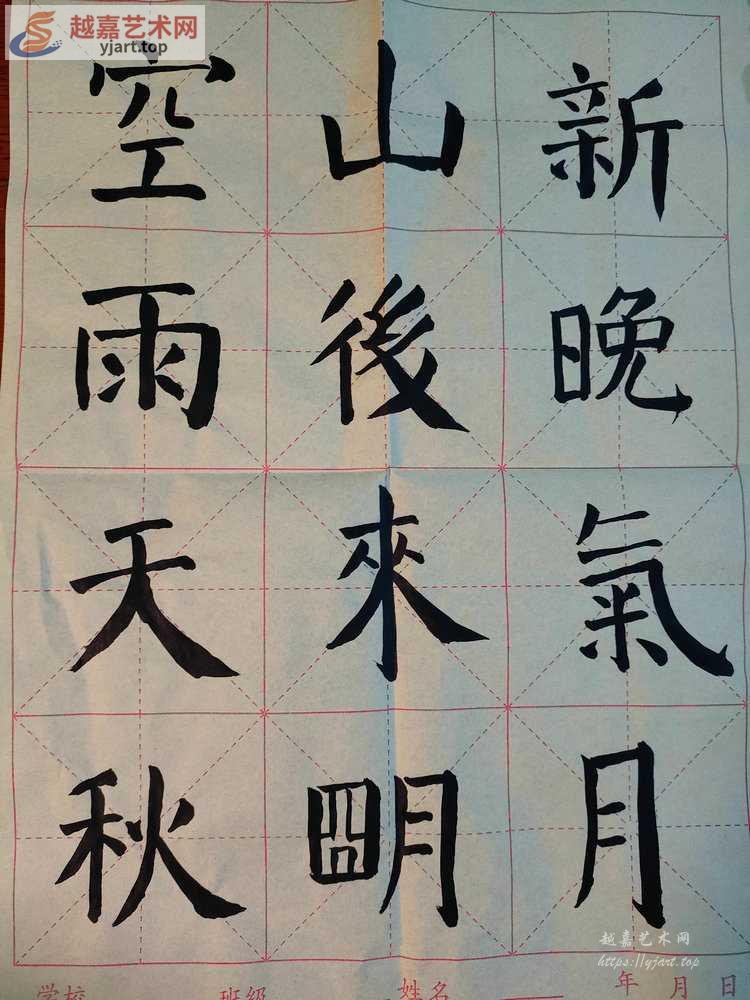 越嘉艺术网
yjart.top
空山新
雨後晚
天來氣
秋朙月
越嘉艺术网
https://yjart.top
学校 班级 姓名 年 月 日